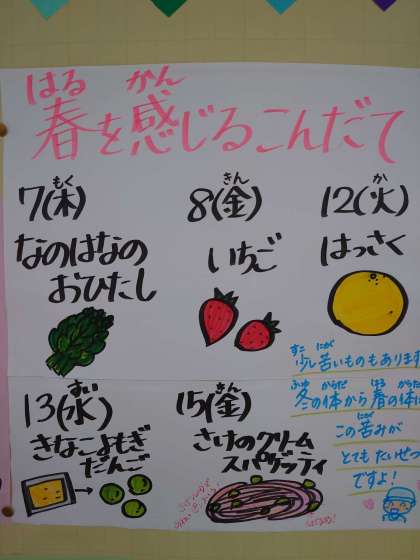 はる かん
春を感じるこんだて
もく
7(木)
なのはなの
おひたし
きん
8(金)
いちご
か
12(火)
はっさく
すい
13(水)
きなこよもぎ
だんご
きん
15(金)
さけのクリーム
スパゲッティ
すこ にが
少し苦いものもあります
ふゆ からだ はる からだ
冬の体から春の体に
にが
この苦みが
とてもたいせつ
ですよ!